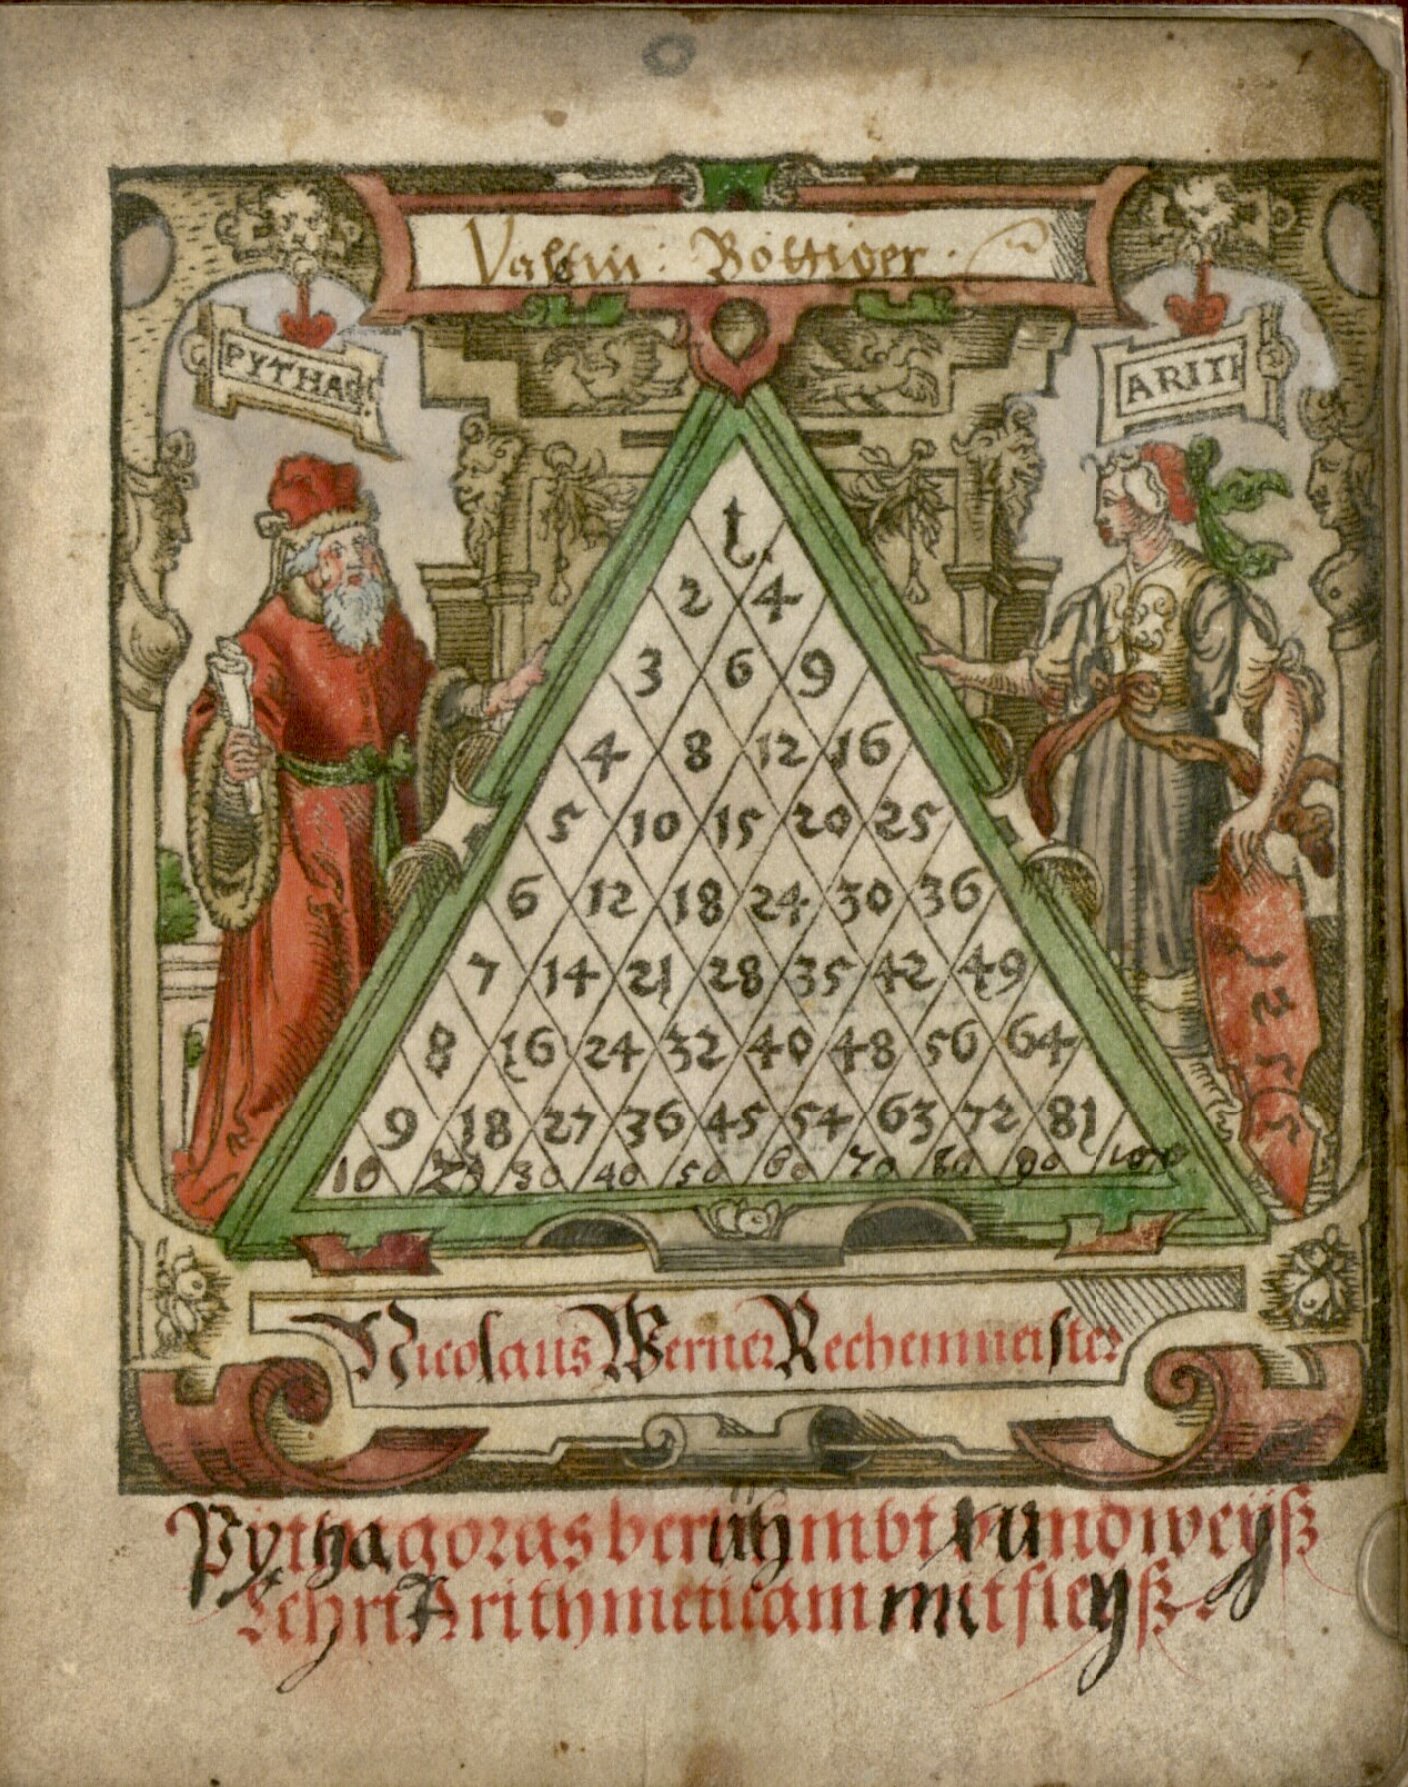 Valtin: Böttiger.
PYTHAG:
ARITH
1.
2 4
3 6 9
4 8 12 16
5 10 15 20 25
6 12 18 24 30 36
7 14 21 28 35 42 49
8 16 24 32 40 48 56 64
9 18 27 36 45 54 63 72 81
10 20 30 40 50 60 70 80 90 100
Nicolaus Werner Rechenmeister
Pythagoras berühmbt vund weyß
Lehrt Arithmeticam mit fleyß.